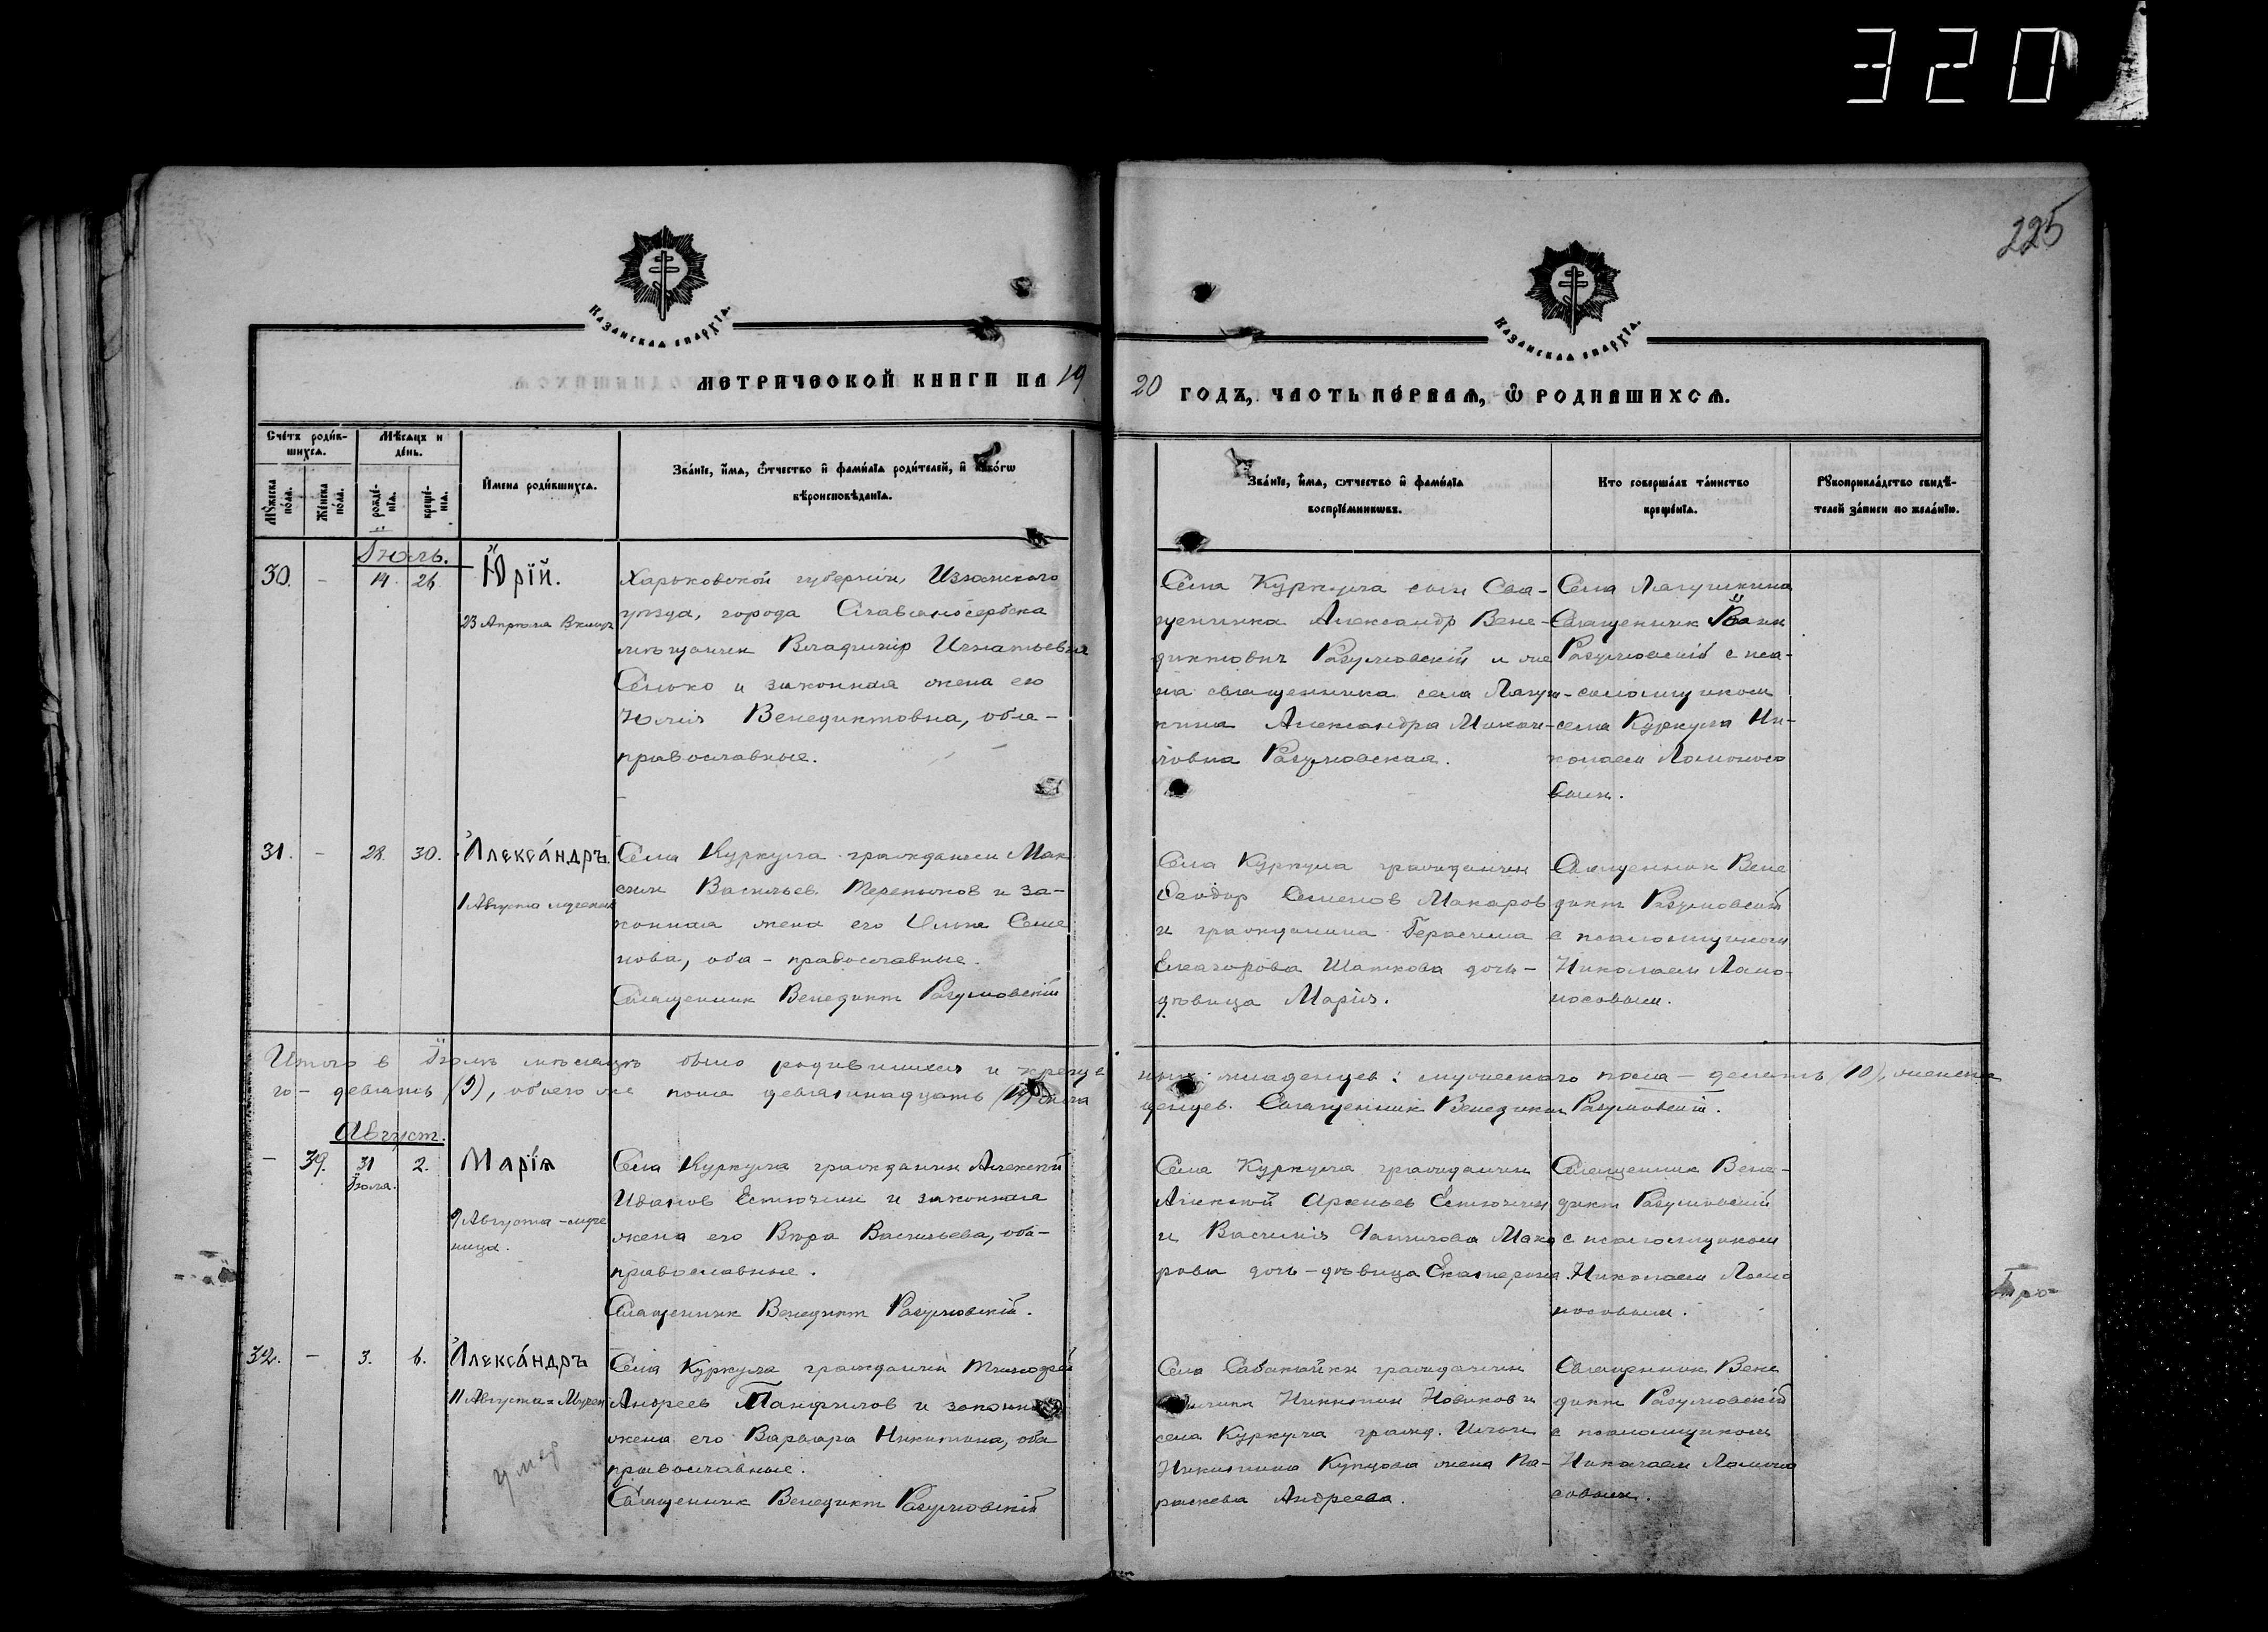 320
225
КАЗАНСКАЯ ЕПАРХІЯ.
КАЗАНСКАЯ ЕПАРХІЯ.
МЕТРИЧЕСКОЙ КНИГИ НА 19
20 ГОДЪ, ЧАСТЬ ПЕРВАЯ, Ѡ РОДИВШИХСЯ.
Счетъ родив-
шихся.
Мѣсяцъ и
день.
Мужеска
пола.
Женска
пола.
рожде-
нія.
креще-
нія.
Имена родившихся.
Званіе, имя, отчество и фамилія родителей, и какогѡ
вѣроисповѣданія.
Званіе, имя, отчество и фамилія
воспріемниковъ.
Кто совершалъ таинство
крещенія.
Рукоприкладство свидѣ-
телей записи по желанію.
Іюль.
30. - 14. 26. Юрій.
23 Апрѣля
Харьковской губерніи, Изюмского
уѣзда, города Славяносербска
мѣщанин Владимір Игнатьевич
и законная жена его
Юлія Венедиктовна, оба -
православные.
Села Куркуля сын Свя-
щенника Александр Вене-
диктович Разумовскій и же
на священника села Лягуш-
кина Александра Михаи-
ловна Разумовская.
Села Лягушкина
Священник Іоанн
Разумовскій с пса-
ломщиком
села Куркуля Ни-
колаем Ломоносо
вым.
31. - 28. 30. Александръ.
1 Августа мученик
Села Куркуля гражданин Мак
сим Васильев Терентьев и за-
конная жена его Семе
нова, оба - православные.
Священник Венедикт Разумовскій
Села Куркуля гражданин
Ѳеодор Семенов Макаров
и гражданина Герасима
Елагорова Шаткова дочь -
дѣвица Марія.
Священник Вене
дикт Разумовскій
с псаломщиком
Николаем Ломо-
носовым.
Итого в Іюлѣ мѣсяцѣ было родившихся и креще
нных младенцев: мужеского пола - десять (10), женска
го - девять (9), обоего же пола девятнадцать (19) мла
денцев. Священник Венедикт Разумовскій.
Август.
- 39. 31 2. Марія
Іюля.
9 Августа - муче
ница.
Села Куркуля гражданин Алексей
Иванов Естюнин и законная
жена его Вѣра Васильева, оба -
православные.
Священник Венедикт Разумовскій.
Села Куркуля гражданин
Алексей Арсеньев Естюнин
и Василія Мака
рова дочь - дѣвица Екатерина.
Священник Вене-
дикт Разумовскій
с псаломщиком
Николаем Ломо
носовым.
32. - 3. 6. Александръ
11 Августа - Мучен
умер
Села Куркуля гражданин Тимофей
Андреев Панфилов и законная
жена его Варвара Никитина, оба
православные.
Священник Венедикт Разумовскій
Села Сабакайки гражданин
Никитин Новиков и
села Куркуля гражд.
Никитина Купцова жена Па-
раскева Андреева.
Священник Вене
дикт Разумовскій
с псаломщиком
Николаем Ломоно
совым.